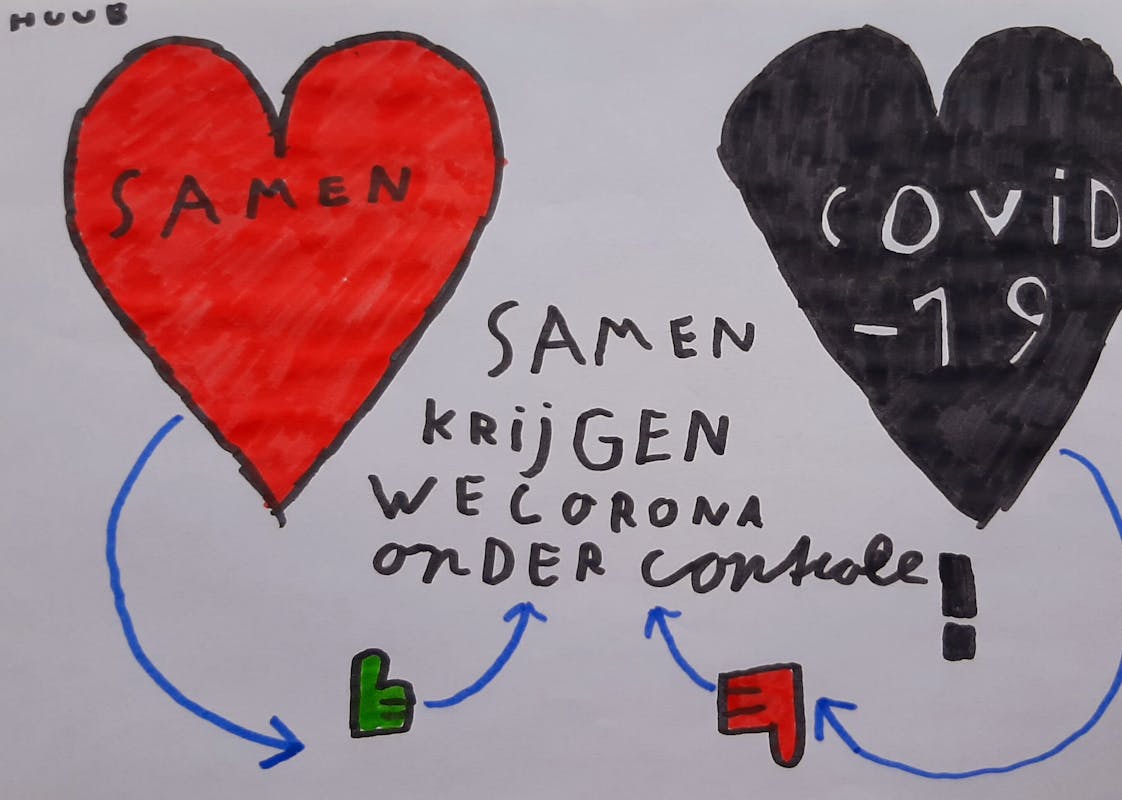 HUUB
SAMEN
COViD
-19
SAMEN
KRijGEN
WE CORONA
onDER controle!